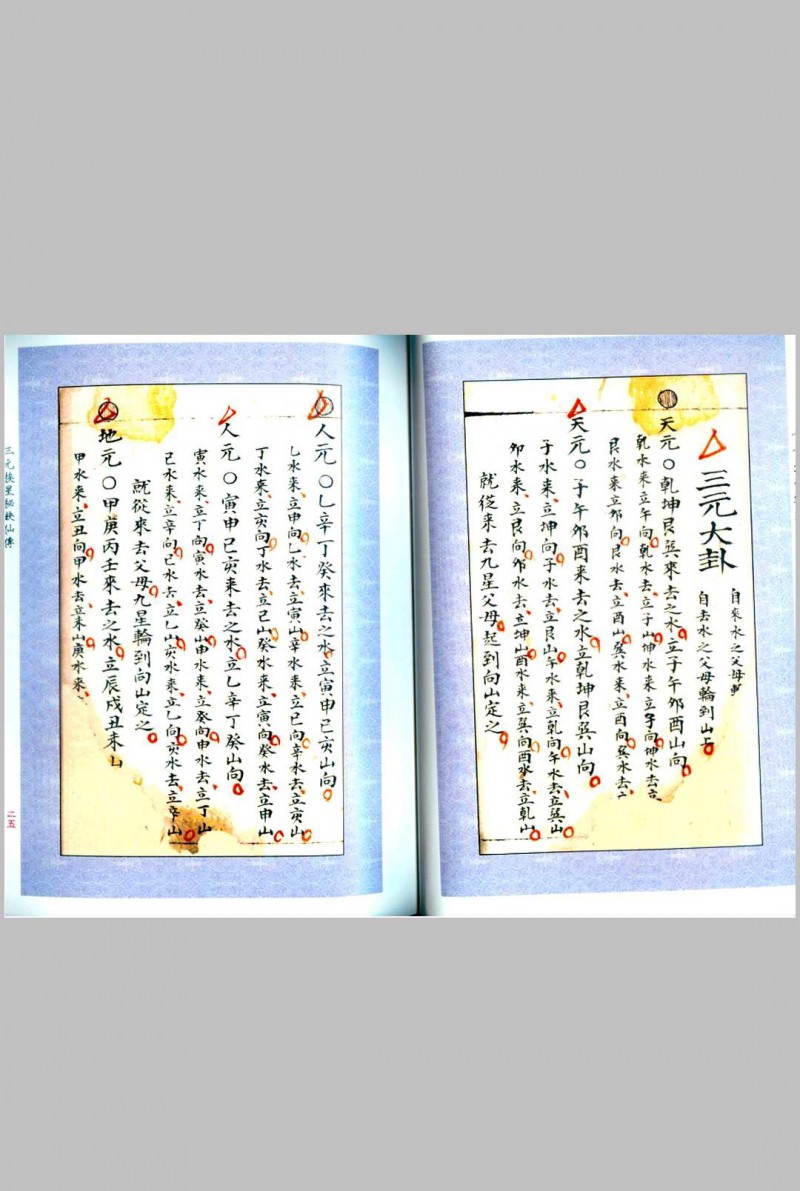 三元大卦
自來水之父母
自去水之父母輪到山
天元○乾坤艮巽來去之水立子午卯酉山向
乾水来立午向乾水去立子山坤水来立卯向坤水去
艮水来立卯向艮水去立酉山巽水来立酉向巽水去
天元○子午卯酉来去之水立乾坤艮巽山向
子水来立坤向子水去立艮山午水来立乾向午水去立巽山
卯水来立艮向卯水去立坤山酉水来立巽向酉水去立乾山
就從来去九星父母起到向山定之
人元○乚辛丁癸來去之水立寅申巳亥山向
乚水来立申向乚水去立寅山辛水来立巳向辛水去立亥山
丁水来立亥向丁水去立己山癸水来立寅向癸水去立申山
人元○寅申己亥来去之水立乚辛丁癸山向
寅水来立丁向寅水去立癸山申水来立癸向申水去立丁山
己水来立辛向己水去立乚山亥水来立乚向亥水去立辛山
就從來去父母九星輪到向山定之
地元○甲庚丙壬來去之水立辰戌丑未山
甲水来立丑向甲水去立未山庚水来
三元挨星秘訣仙傳
二五